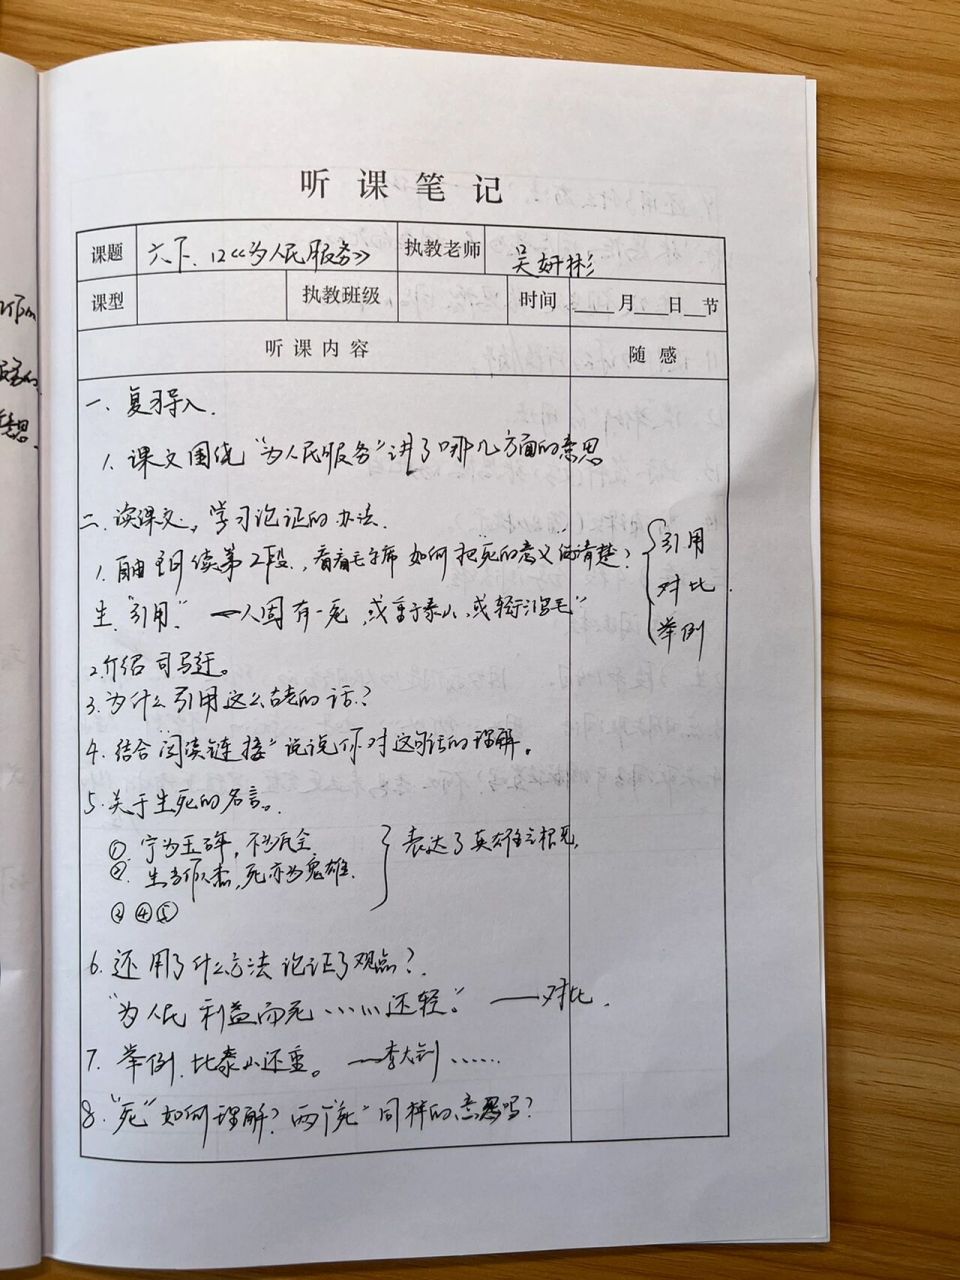 听课笔记
课题 六下.12《为人民服务》 执教老师 吴妍彬
课型 执教班级 时间 月 日 节
听课内容 随感
一、复习导入.
1. 课文围绕“为人民服务”讲了哪几方面的意思
二、读课文，学习论证的办法.
1. 自由读第2段，看看毛主席如何把死的意义说清楚? { 引用 对比 举例
生“引用” —人固有一死，或重于泰山，或轻于鸿毛”
2.介绍司马迁。
3.为什么引用这么古老的话?
4. 结合阅读链接”说说你对这句话的理解。
5.关于生死的名言。
①. 宁为玉碎，不为瓦全
②. 生当作人杰,死亦为鬼雄. } 表达了英雄主义
③④⑤
6. 还用了什么方法论证了观点?
“为人民利益而死……还轻。” ——对比.
7. 举例. 比泰山还重。 —李大钊……
8.“死”如何理解? 两个“死”同样的意思吗?